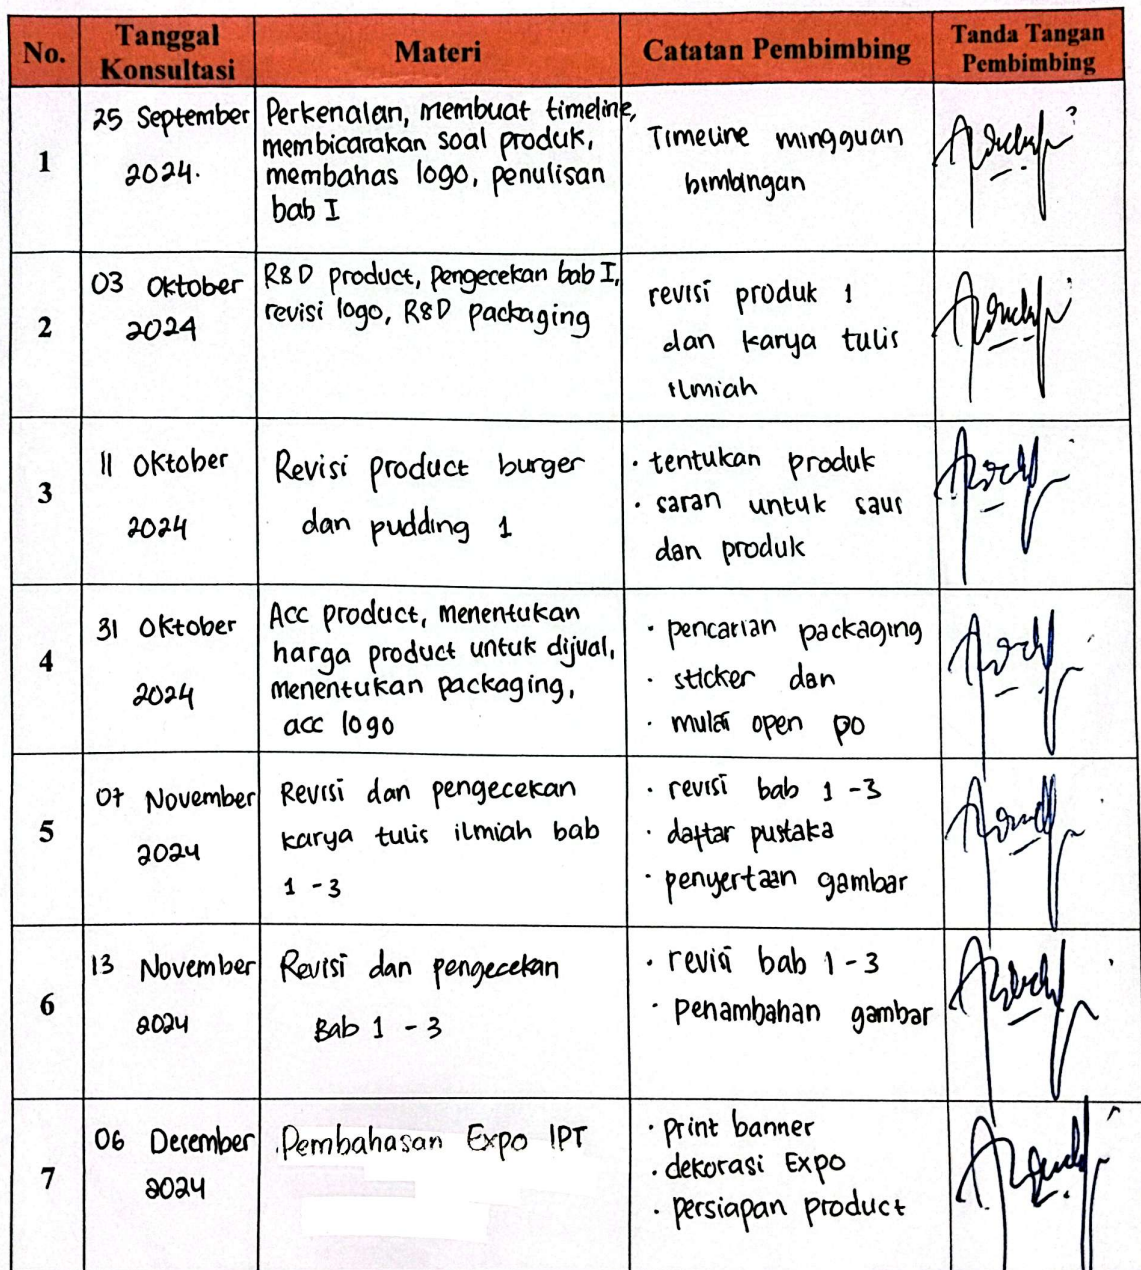 No.
Tanggal
Konsultasi
Materi
Catatan Pembimbing
Tanda Tangan
Pembimbing
1
25 September
2024.
Perkenalan, membuat timeline,
membicarakan soal produk,
membahas logo, penulisan
bab I
Timeline mingguan
bimbingan
2
03 Oktober
2024
R&D product, pengecekan bab I,
revisi logo, R&D packaging
revisi produk 1
dan karya tulis
ilmiah
3
11 Oktober
2024
Revisi product burger
dan pudding 1
· tentukan produk
· saran untuk saus
dan produk
4
31 Oktober
2024
Acc product, menentukan
harga product untuk dijual,
menentukan packaging,
acc logo
· pencarian packaging
· sticker dan
· mulai open po
5
07 November
2024
Revisi dan pengecekan
karya tulis ilmiah bab
1 - 3
· revisi bab 1 - 3
· daftar pustaka
· penyertaan gambar
6
13 November
2024
Revisi dan pengecekan
Bab 1 - 3
· revisi bab 1 - 3
· penambahan gambar
7
06 Desember
2024
Pembahasan Expo IPT
· print banner
· dekorasi Expo
· persiapan product